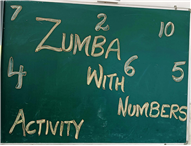 7 2 10
ZUMBA
4 WITH 6 5
NUMBERS
ACTIVITY